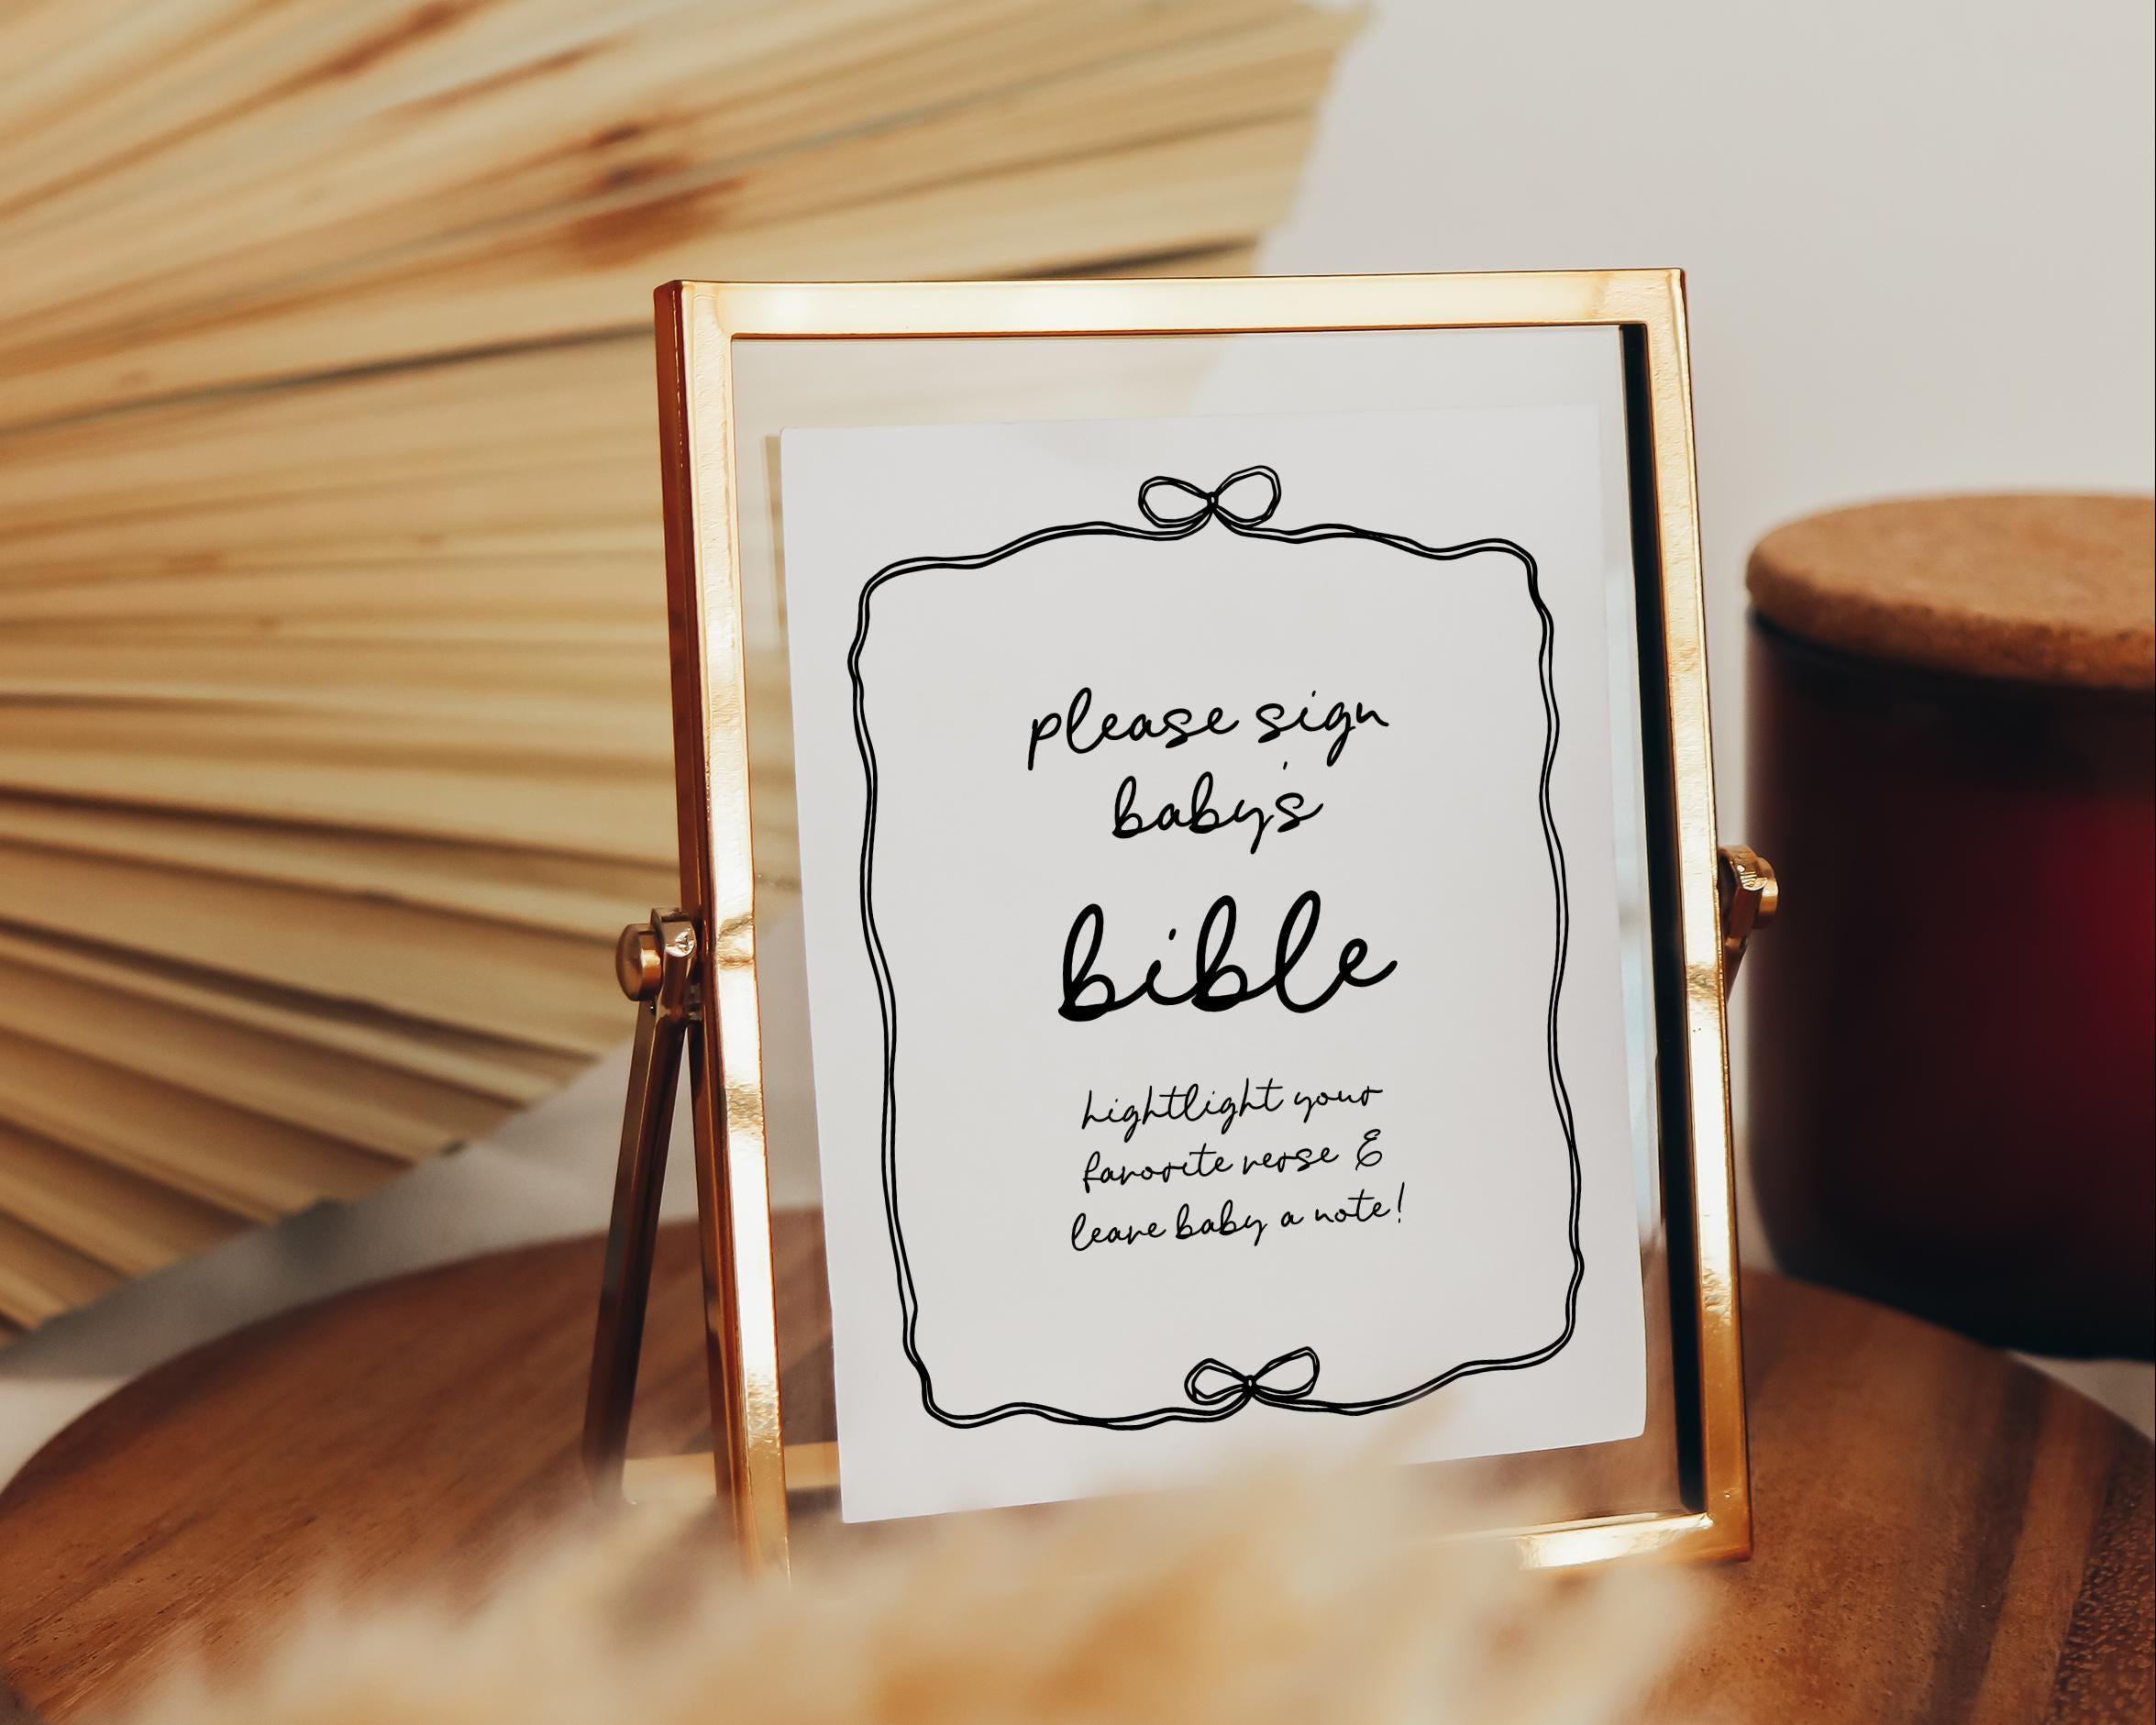 please sign
baby's
bible
hightlight your
favorite verse &
leave baby a note!